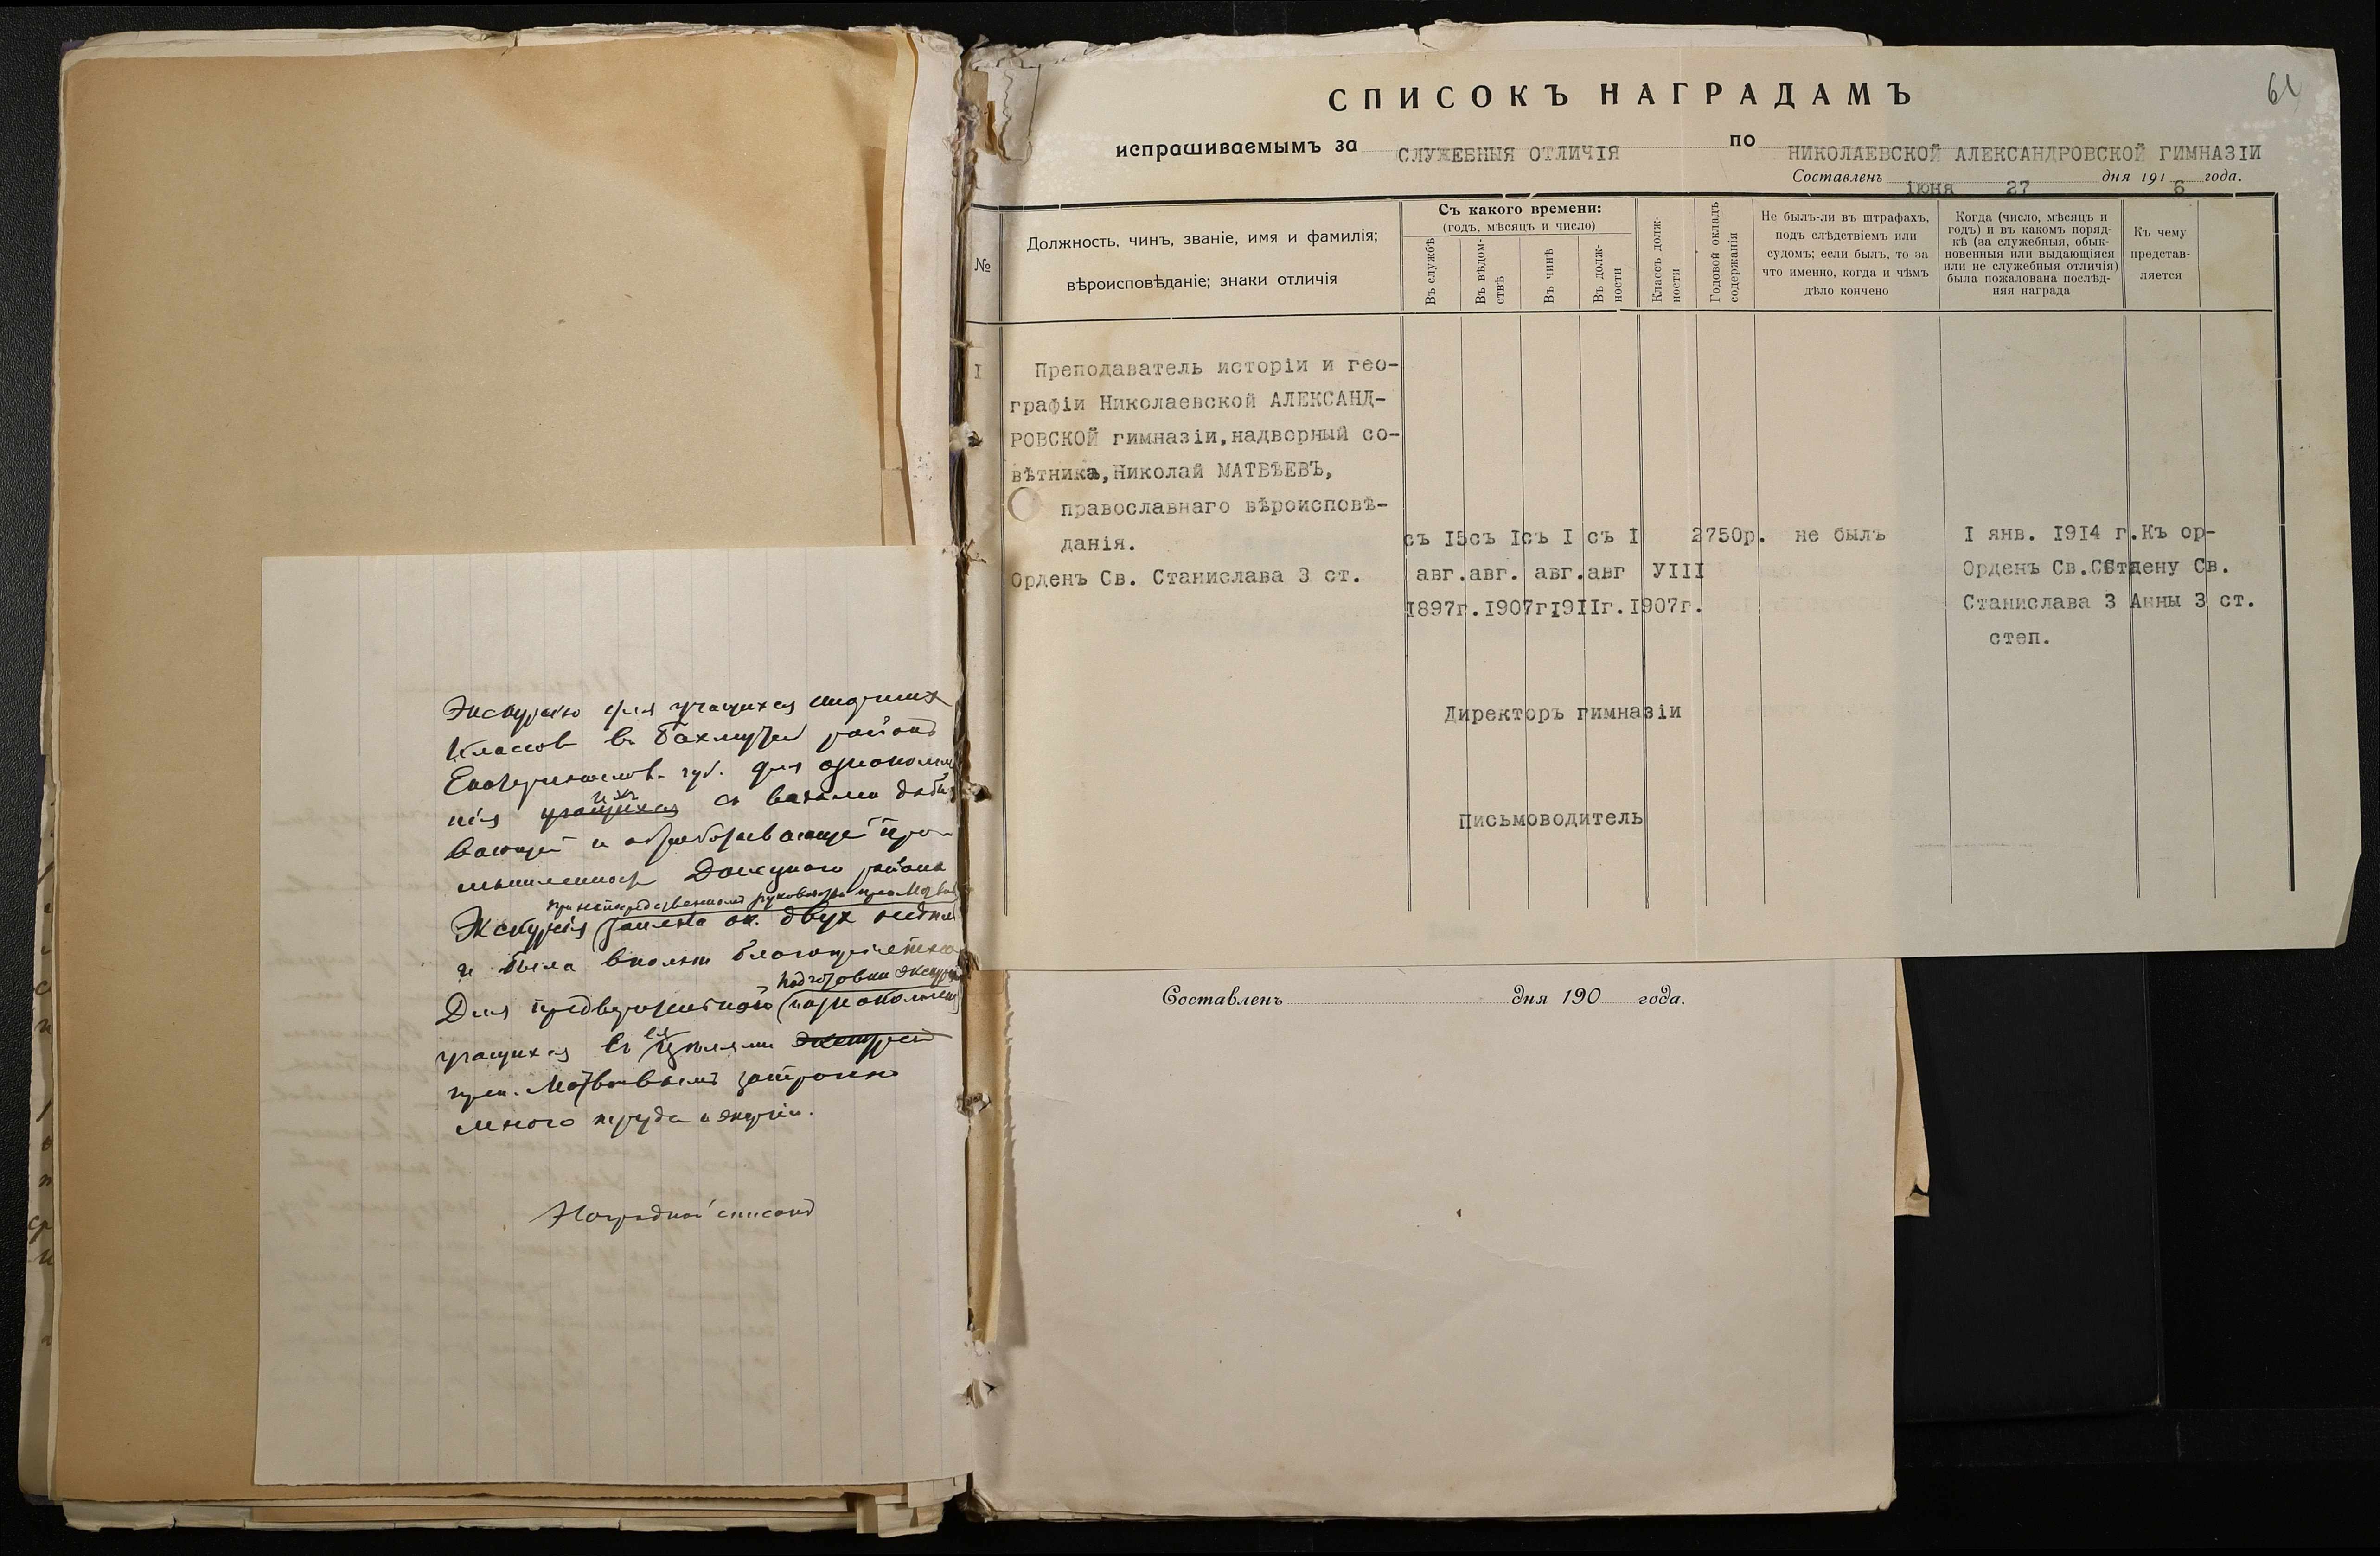 Экскурсію для учащихся
классовъ въ Бахмутск районъ
Екатеринослав. губ. для ознакомле
нія учащихся ихъ съ
вающей и обрабатывающей про
мышленност Донецкаго района
при непосредственномъ руководствѣ преп. Матвѣев
Экскурсія заняла ок. двухъ недѣль
и была вполнѣ
подготовки экскурс
Для предварительнаго ознакомлен
учащихся съ ея цѣлями экскурсій
преп. Матвѣевымъ затрачено
много труда и энергіи.
Наградной списокъ
64
СПИСОКЪ НАГРАДАМЪ
испрашиваемымъ за СЛУЖЕБНЫЯ ОТЛИЧІЯ по НИКОЛАЕВСКОЙ АЛЕКСАНДРОВСКОЙ ГИМНАЗІИ
Составленъ іюня 27 дня 1916 года.
№
Должность, чинъ, званіе, имя и фамилія;
вѣроисповѣданіе; знаки отличія
Съ какого времени:
(годъ, мѣсяцъ и число)
Въ службѣ
Въ вѣдом-
ствѣ
Въ чинѣ
Въ долж-
ности
Классъ долж-
ности
Годовой окладъ
содержанія
Не былъ-ли въ штрафахъ,
подъ слѣдствіемъ или
судомъ; если былъ, то за
что именно, когда и чѣмъ
дѣло кончено
Когда (число, мѣсяцъ и
годъ) и въ какомъ поряд-
кѣ (за служебныя, обык-
новенныя или выдающіяся
или не служебныя отличія)
была пожалована послѣд-
няя награда
Къ чему
представ-
ляется
I Преподаватель исторіи и гео-
графіи Николаевской АЛЕКСАНД-
РОВСКОЙ гимназіи, надворный со-
вѣтникъ, Николай МАТВѢЕВЪ,
православнаго вѣроисповѣ-
данія.
Орденъ Св. Станислава 3 ст.
съ I5 съ I съ I съ I 2750р. не былъ I янв. I9I4 г. Къ ор-
авг. авг. авг. авг УІІІ Орденъ Св. Ст дену Св.
I897г. I907г I9IIг. I907г. Станислава 3 Анны 3 ст.
степ.
Директоръ гимназіи
Письмоводитель
Составленъ дня 190 года.